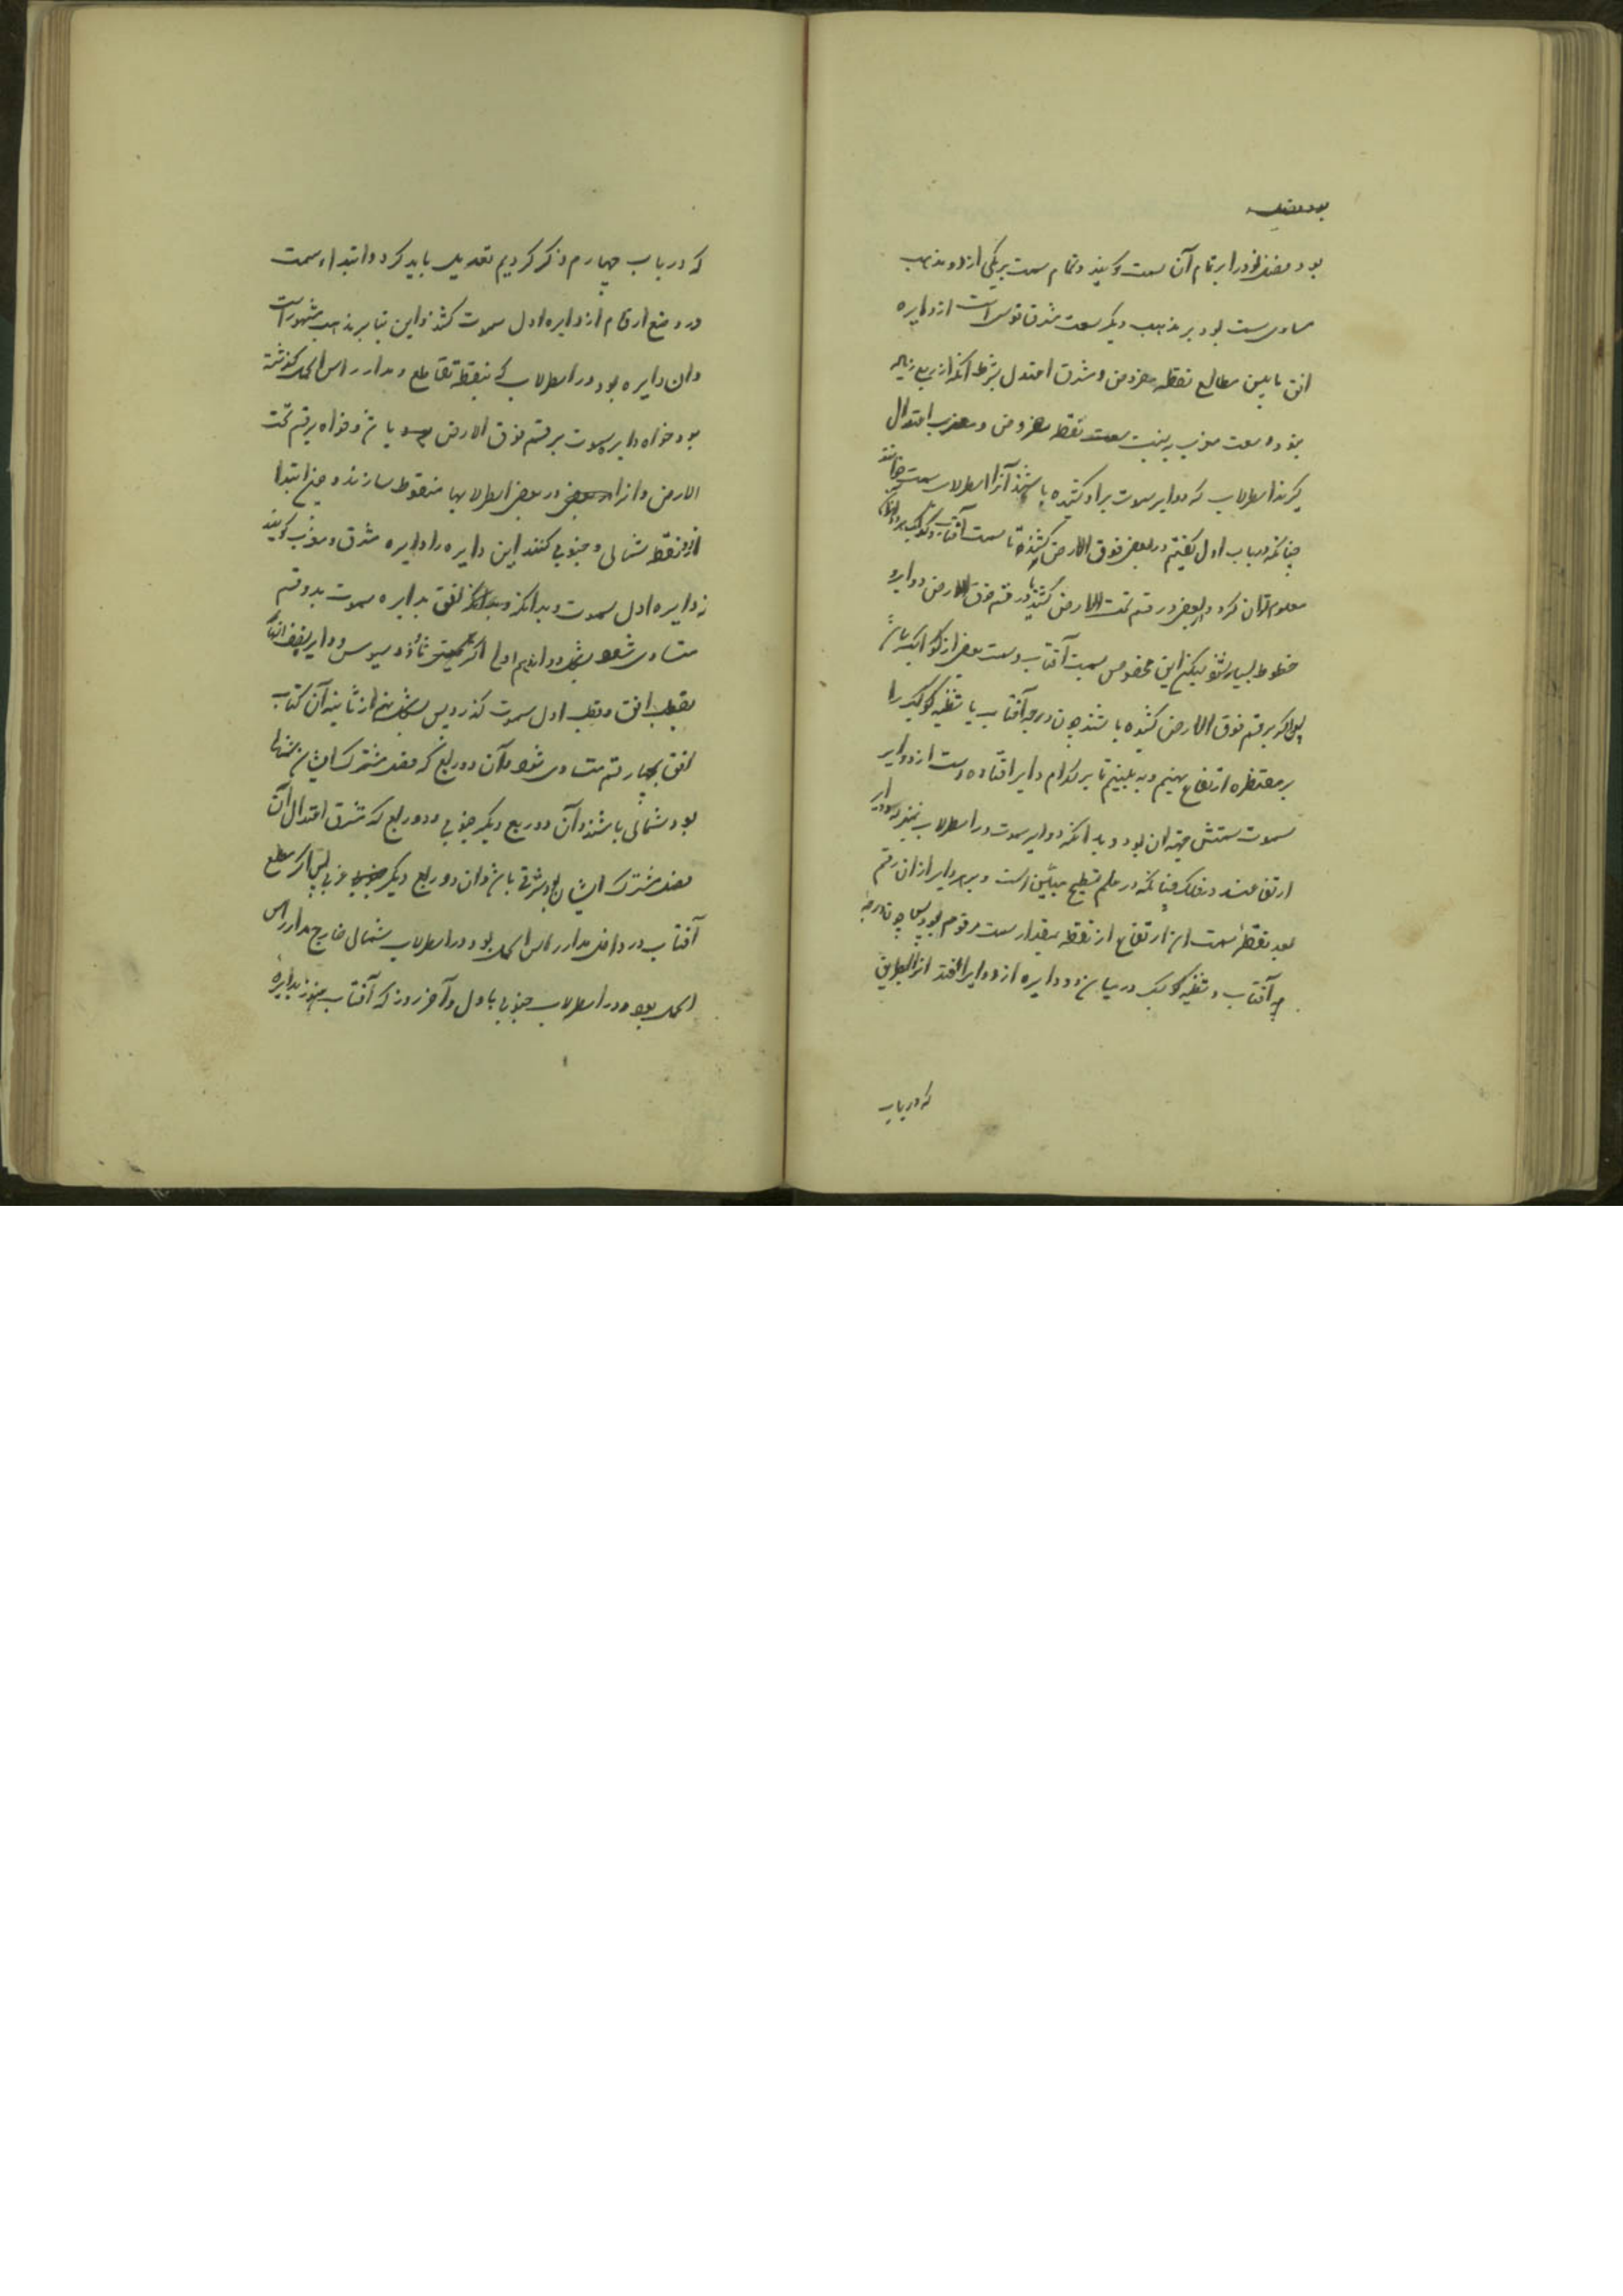 بود و بعضی خود را بر تمام آن سمت گویند و تمام سمت بر یکی ازو و مذهب
مساوی سمت بود بر مذهب دیگر سعت مشرق قوسی است از دایره
افق مابین مطالع نقطه مفروض و مشرق اعتدال بشرط آنکه از ربع زیاده
نبود و سعت مغرب به نسبت نقطه مفروض و مغرب اعتدال
گیرند اسطرلاب که دوایر سموت برو کشیده باشند آنرا اسطرلاب سمت خوانند
چنانکه در باب اول گفتیم در بعضی فوق الارض کشند تا سمت آفتاب و کواکب
معلوم توان کرد و بعضی در قسم تحت الارض کشند تا در قسم فوق الارض دوایر و
خطوط بسیار نشود لیکن این مخصوص سمت آفتاب و سمت بعضی از کواکب باشد
پس اگر بر قسم فوق الارض کشیده باشند چون درجه آفتاب یا شظیه کوکب را
بر مقنطره ارتفاع نهیم و به بینیم تا بر کدام دایر افتاده است از دوایر
سموت سمتش چندان بود و بدانکه دوایر سموت در اسطرلاب
ارتفاعند در فلک چنانکه در علم تسطیح مبین است و بر هر دایر از ان رقم
بعد نقطه سمت ان ارتفاع از نقطه بمقدار سمت مرقوم بود پس چون درجه
آفتاب و شظیه کوکب در میان دو دایره از دوایر افتد انرا بطریق
که در باب
که در باب چهارم ذکر کردیم تعدیل باید کرد و ابتداء سمت
در وضع ارقام از دایره اول سموت کشند و این بنا بر مذهب مشهور است
وان دایره بود در اسطرلاب که بنقطه تقاطع و مدار راس الحمل گذشته
بود خواه دایر سموت بر قسم فوق الارض باشد و خواه بر قسم تحت
الارض و انرا در بعضی اسطرلابها منقوط سازند و چون ابتدا
از دو نقطه شمالی و جنوبی کنند این دایره را دایره مشرق و مغرب گویند
نه دایره اول سموت و بدانکه افق بدایره سموت بدو قسم
متساوی شود بشکل دوازدهم اولی اکر ثاوذوسیوس و دایر نصف النهار
بقطب افق و بقطب اول سموت گذرد پس بشکل نهم از ثانیه آن کتاب
افق بچهار قسم متساوی شود و آن دو ربع که فصل مشترک ایشان شمال
بود شمالی باشند و آن دو ربع دیگر جنوبی و دو ربع که مشرق اعتدال آن
فصل مشترک ایشان بود شرقی باشد و ان دو ربع دیگر غربی پس اگر مطلع
آفتاب در داخل مدار راس الحمل بود در اسطرلاب شمالی خارج مدار راس
الحمل بود در اسطرلاب جنوبی باول و آخر روز که آفتاب هنوز بدایره